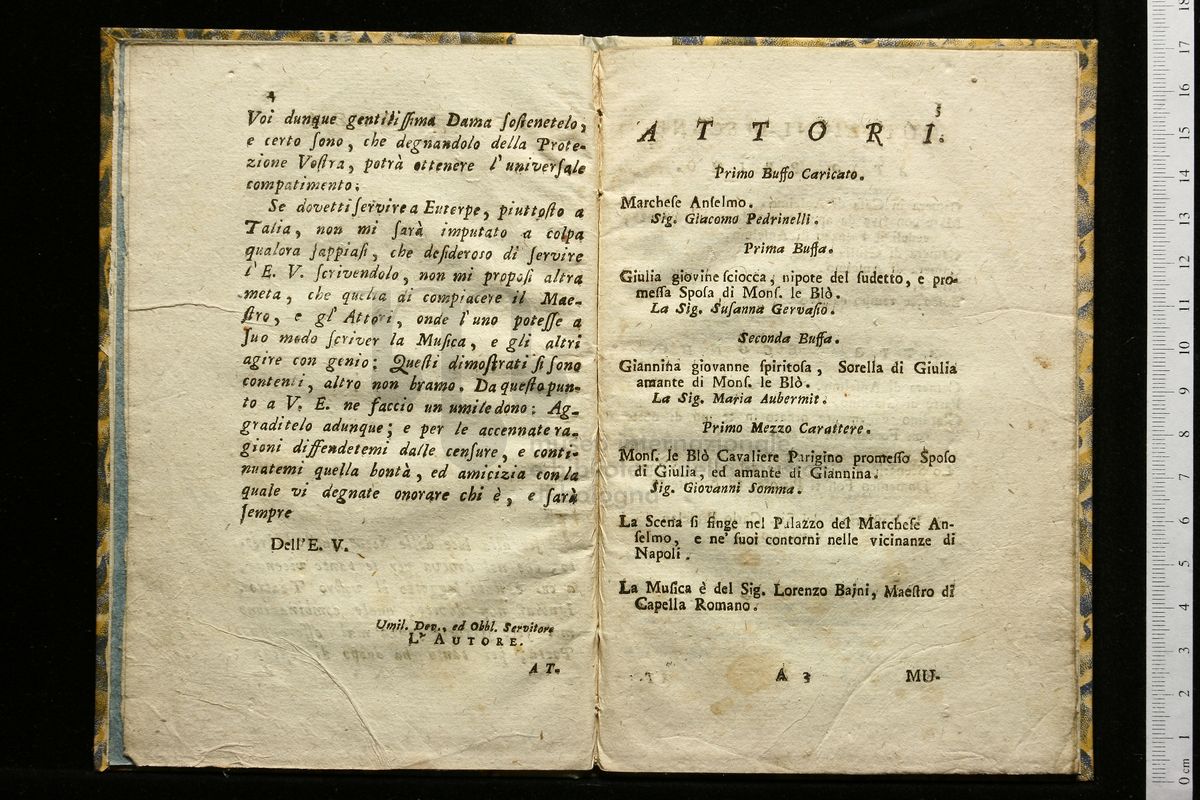 4
Voi dunque gentilissima Dama sostenetelo,
e certo sono, che degnandolo della Prote-
zione Vostra, potrà ottenere l'universale
compatimento;
Se dovetti servire a Euterpe, piuttosto a
Talia, non mi sarà imputato a colpa
qualora sappiasi, che desideroso di servire
l'E. V. scrivendolo, non mi proposi altra
meta, che quella di compiacere il Mae-
stro, e gl'Attori, onde l'uno potesse a
suo modo scriver la Musica, e gli altri
agire con genio: Questi dimostrati si sono
contenti, altro non bramo. Da questo pun-
to a V. E. ne faccio un umile dono: Ag-
graditelo adunque; e per le accennate ra-
gioni diffendetemi dalle censure, e conti-
nuatemi quella bontà, ed amicizia con la
quale vi degnate onorare chi è, e sarà
sempre
Dell'E. V.
Umil. Dev., ed Obbl. Servitore
L'AUTORE.
AT-
5
ATTORI.
Primo Buffo Caricato.
Marchese Anselmo.
Sig. Giacomo Pedrinelli.
Prima Buffa.
Giulia giovine sciocca, nipote del sudetto, e pro-
messa Sposa di Mons. le Blò.
La Sig. Susanna Gervasio.
Seconda Buffa.
Giannina giovanne spiritosa, Sorella di Giulia
amante di Mons. le Blò.
La Sig. Maria Aubermit.
Primo Mezzo Carattere.
Mons. le Blò Cavaliere Parigino promesso Sposo
di Giulia, ed amante di Giannina.
Sig. Giovanni Somma.
La Scena si finge nel Palazzo del Marchese An-
selmo, e ne' suoi contorni nelle vicinanze di
Napoli.
La Musica è del Sig. Lorenzo Bajni, Maestro di
Capella Romano.
A 3
MU-
museo internazionale
di bologna
0 cm 1 2 3 4 5 6 7 8 9 10 11 12 13 14 15 16 17 18